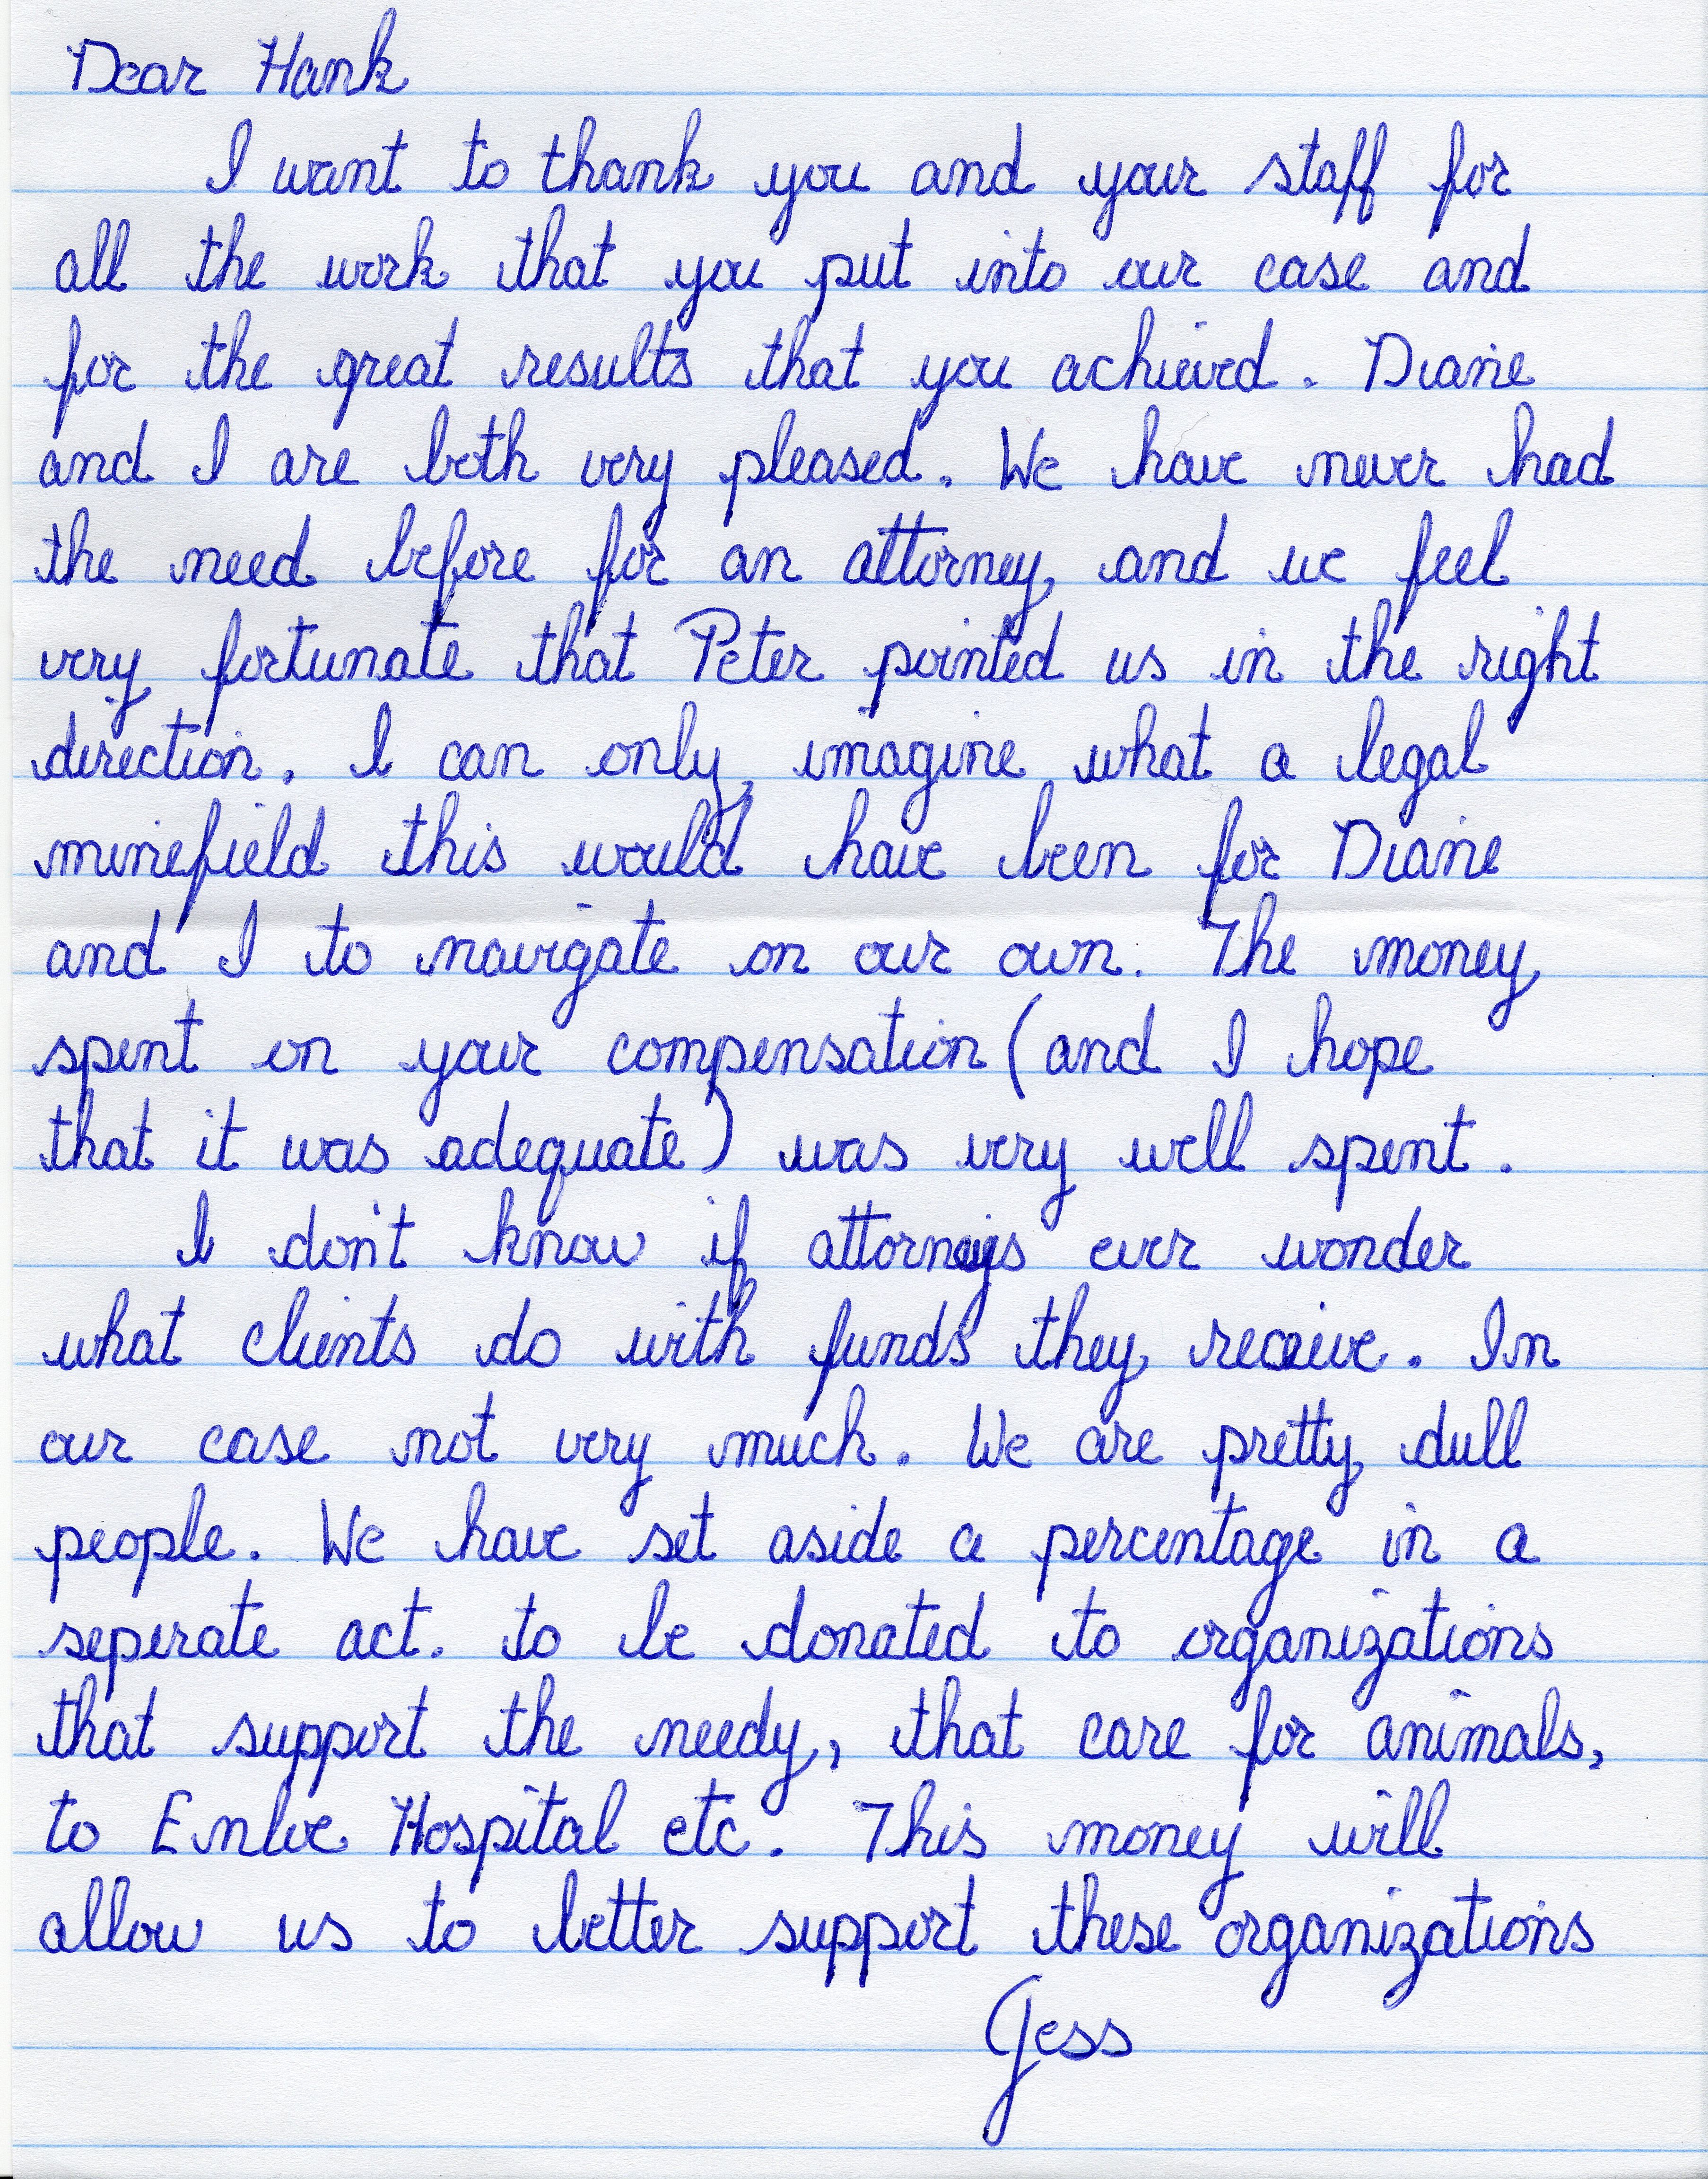 Dear Hank
I want to thank you and your staff for
all the work that you put into our case and
for the great results that you achieved. Diane
and I are both very pleased. We have never had
the need before for an attorney and we feel
very fortunate that Peter pointed us in the right
direction. I can only imagine what a legal
minefield this would have been for Diane
and I to navigate on our own. The money
spent on your compensation (and I hope
that it was adequate) was very well spent.
I don't know if attorneys ever wonder
what clients do with funds they receive. In
our case not very much. We are pretty dull
people. We have set aside a percentage in a
seperate act. to be donated to organizations
that support the needy, that care for animals,
to Enloe Hospital etc. This money will
allow us to better support these organizations
Jess